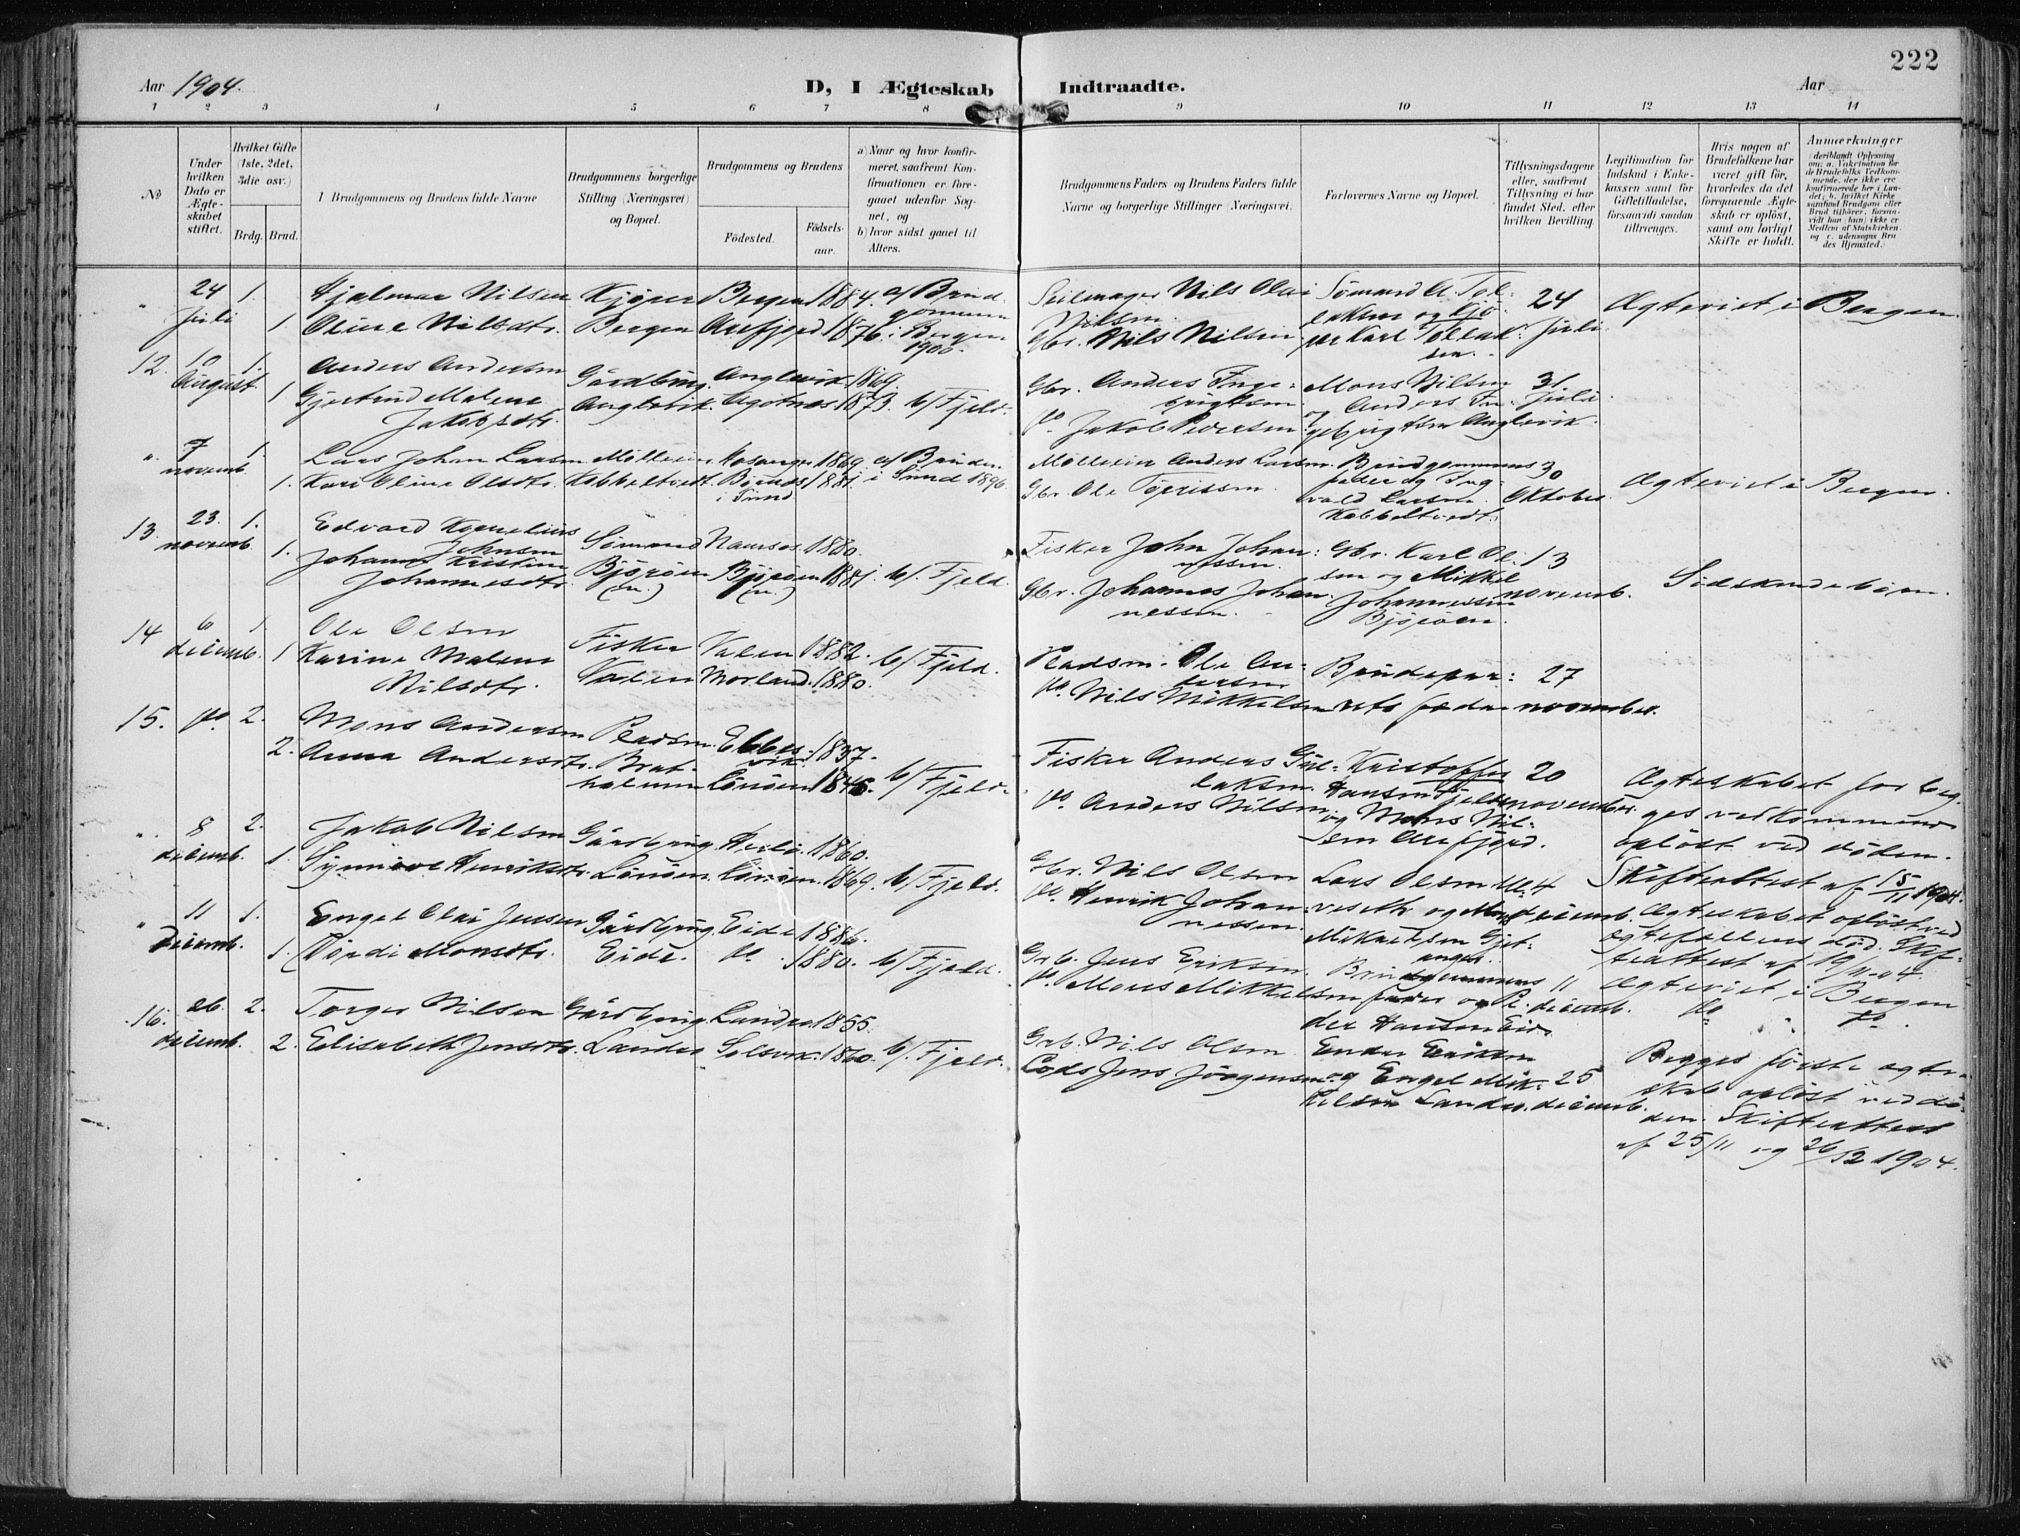 222
Aar 1904.
D, I Ægteskab Indtraadte.
Aar
1 2 3 4 5 6 7 8 9 10 11 12 13 14
№
Under hvilken Dato er Ægteskabet stiftet.
Hvilket Gifte (1ste, 2det, 3die osv.)
Brdg. Brud.
Brudgommens og Brudens fulde Navne
Brudgommens borgerlige Stilling (Næringsvei) og Bopæl.
Brudgommens og Brudens
Fødested.
Fødselsaar.
a) Naar og hvor konfirmeret, saafremt Konfirmationen er foregaaet udenfor Sognet, og
b) hvor sidst gaaet til Alters.
Brudgommens Faders og Brudens Faders fulde Navne og borgerlige Stillinger (Næringsvei).
Forlovernes Navne og Bopæl.
Tillysningsdagene eller, saafremt Tillysning ei har fundet Sted, efter hvilken Bevilling.
Legitimation for Indskud i Enkekassen samt for Giftetilladelse, forsaavidt saadan tiltrænges.
Hvis nogen af Brudefolkene har været gift før, hvorledes da det foregaaende Ægteskab er opløst, samt om lovligt Skifte er holdt.
Anmerkninger
24 Juli 1. Hjalmar Nilsen Kjører Bergen 1884. a/ Brudgommen
1 Oline Nilsdtr. Bergen Arefjord 1876. i Bergen 1900.
Seilmager Nils Olai Nilsen.
Gbr. Nils Nilsen
Sømand A. Tollaksen og Kjører Karl Tollaksen.
24 Juli
Ægteviet i Bergen.
12. 10 August 1. Anders Andersen Gårdbrug. Anglevik 1869.
1 Gjertrud Malene Jakobsdtr. Anglevik. Agotnes 1873. b/ Fjeld.
Gbr. Anders Ingebrigtsen
Do. Jakob Pedersen
Mons Nilsen og Anders Ingebrigtsen Anglevik.
31 Juli
7 novemb. 1 Lars Johan Larsen Mølleri. Hosanger 1869. a/ Bruden
1. Kari Oline Olsdtr. Kobbeltvedt. Bjørnøs i Sund 1881. i Sund 1896.
Mølleeier Anders Larsen.
Gbr. Ole
Brudgommens fader og Ingvald Larsen Kobbeltvedt.
30 Oktober
Ægteviet i Bergen.
13. 23. novemb. 1. Edvard Kornelius Johnsen Sømand 1880.
1. Johanne Kristine Johannesdtr. Bjørøen Bjørøen 1881. b/ Fjeld.
Fisker John Johannessen.
Gbr. Johannes Johannessen.
Gbr. Karl Olsen og Mikkel Johannessen Bjørøen.
13 novemb.
Sødskendebørn.
14 6 decemb. 1 Ole Olsen Fisker Valen 1882.
1 Karine Malene Nilsdtr. Valen Morland. 1880. b/ Fjeld.
Pladsm. Ole
Do. Nils Mikkelsen
Brudeparrets fædre
27 november.
15. Do 2. Mons Andersen Pladsm. Ebbesvik 1837.
2. Anna Andersdtr. Bratholmen Lønøen 1846. b/ Fjeld.
Fisker Anders Gullaksen.
Do. Anders Nilsen
Kristoffer Hansen Fjeld og Mons Nilsen Arefjord.
20 november.
Ægteskabet for begges vedkommende opløst ved døden.
Skifteattest af 15/11 1904.
8 decemb. 2. Jakob Nilsen Gårdbrug. Herlø 1860.
1. Synnøve Henriksdtr. Lønøen. Lønøen. 1869. b/ Fjeld.
Gbr. Nils Olsen
Do. Henrik Johannessen.
Lars Olsen
Mikaelsen Gjetanger.
4 decemb.
Ægteskabet opløst ved ægtefællens død. Skifteattest af 19/11-04.
11 decemb. 1. Engel Olai Jensen Gårdbrug. Eide 1886.
1. Gjørdi Monsdtr. Eide. Do 1880. b/ Fjeld.
Grb. Jens Eriksen.
Do. Mons Mikkelsen
Brudgommens fader og Peder Hansen Eide
11 decemb.
Ægteviet i Bergen
Do " Do.
16. 26. decemb. 2. Torger Nilsen Gårdbrug. Landro 1855.
2. Elisabeth Jensdtr. Landro Solsvik. 1860. b/ Fjeld.
Grb. Nils Olsen
Lods Jens Jørgensen
Endre Eriksen og Engel Mikkelsen Landro.
25 decemb.
Begges første ægteskab opløst ved døden. Skifteattest af 25/11 og 26/12 1904.